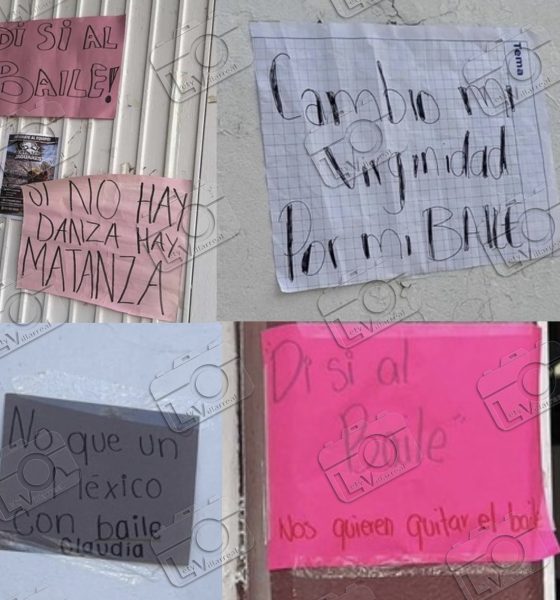 DI SI AL
BAILE!
SI NO HAY
DANZA HAY
MATANZA
Tema
Cambio mi
Virginidad
Por mi BAILE
No que un
México
con baile
Claudia
Di si al
Baile
Nos quieren quitar el baile
Lety
Villarreal
LV